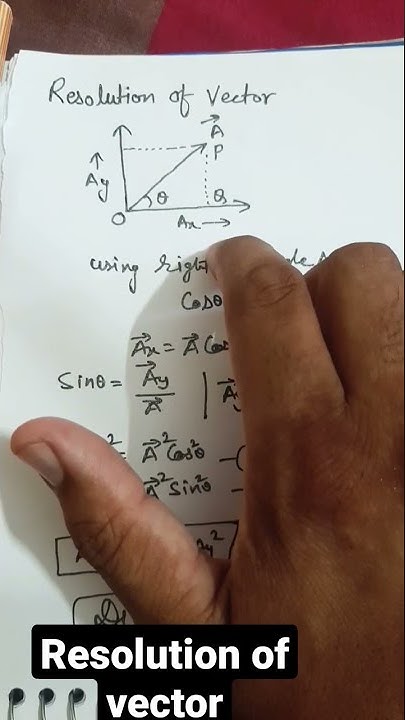 Resolution of Vector
A⃗
P
↑
Ay
θ
Q
O
Ax →
using
Cosθ
A⃗x = A⃗ Cos
Sinθ = A⃗y / A⃗ | A⃗y
² = A⃗² Cos²θ –(
A⃗² Sin²θ –
Resolution of
vector